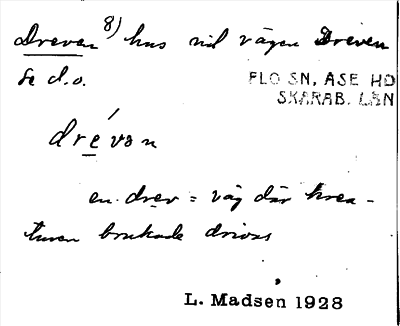 Dreven 8) hus vid vägen Dreven
se d.o.
FLO SN, ASE HD
SKARAB. LÄN
drévən
en drev = väg där krea-
turen brukade drivas
L. Madsen 1928